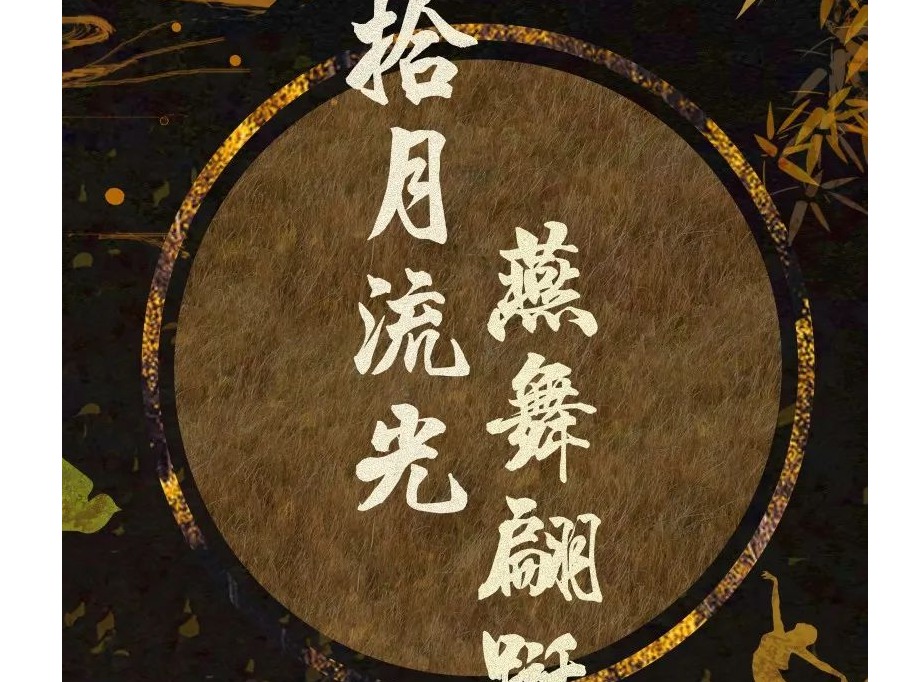 拾月流光
燕舞翩跹